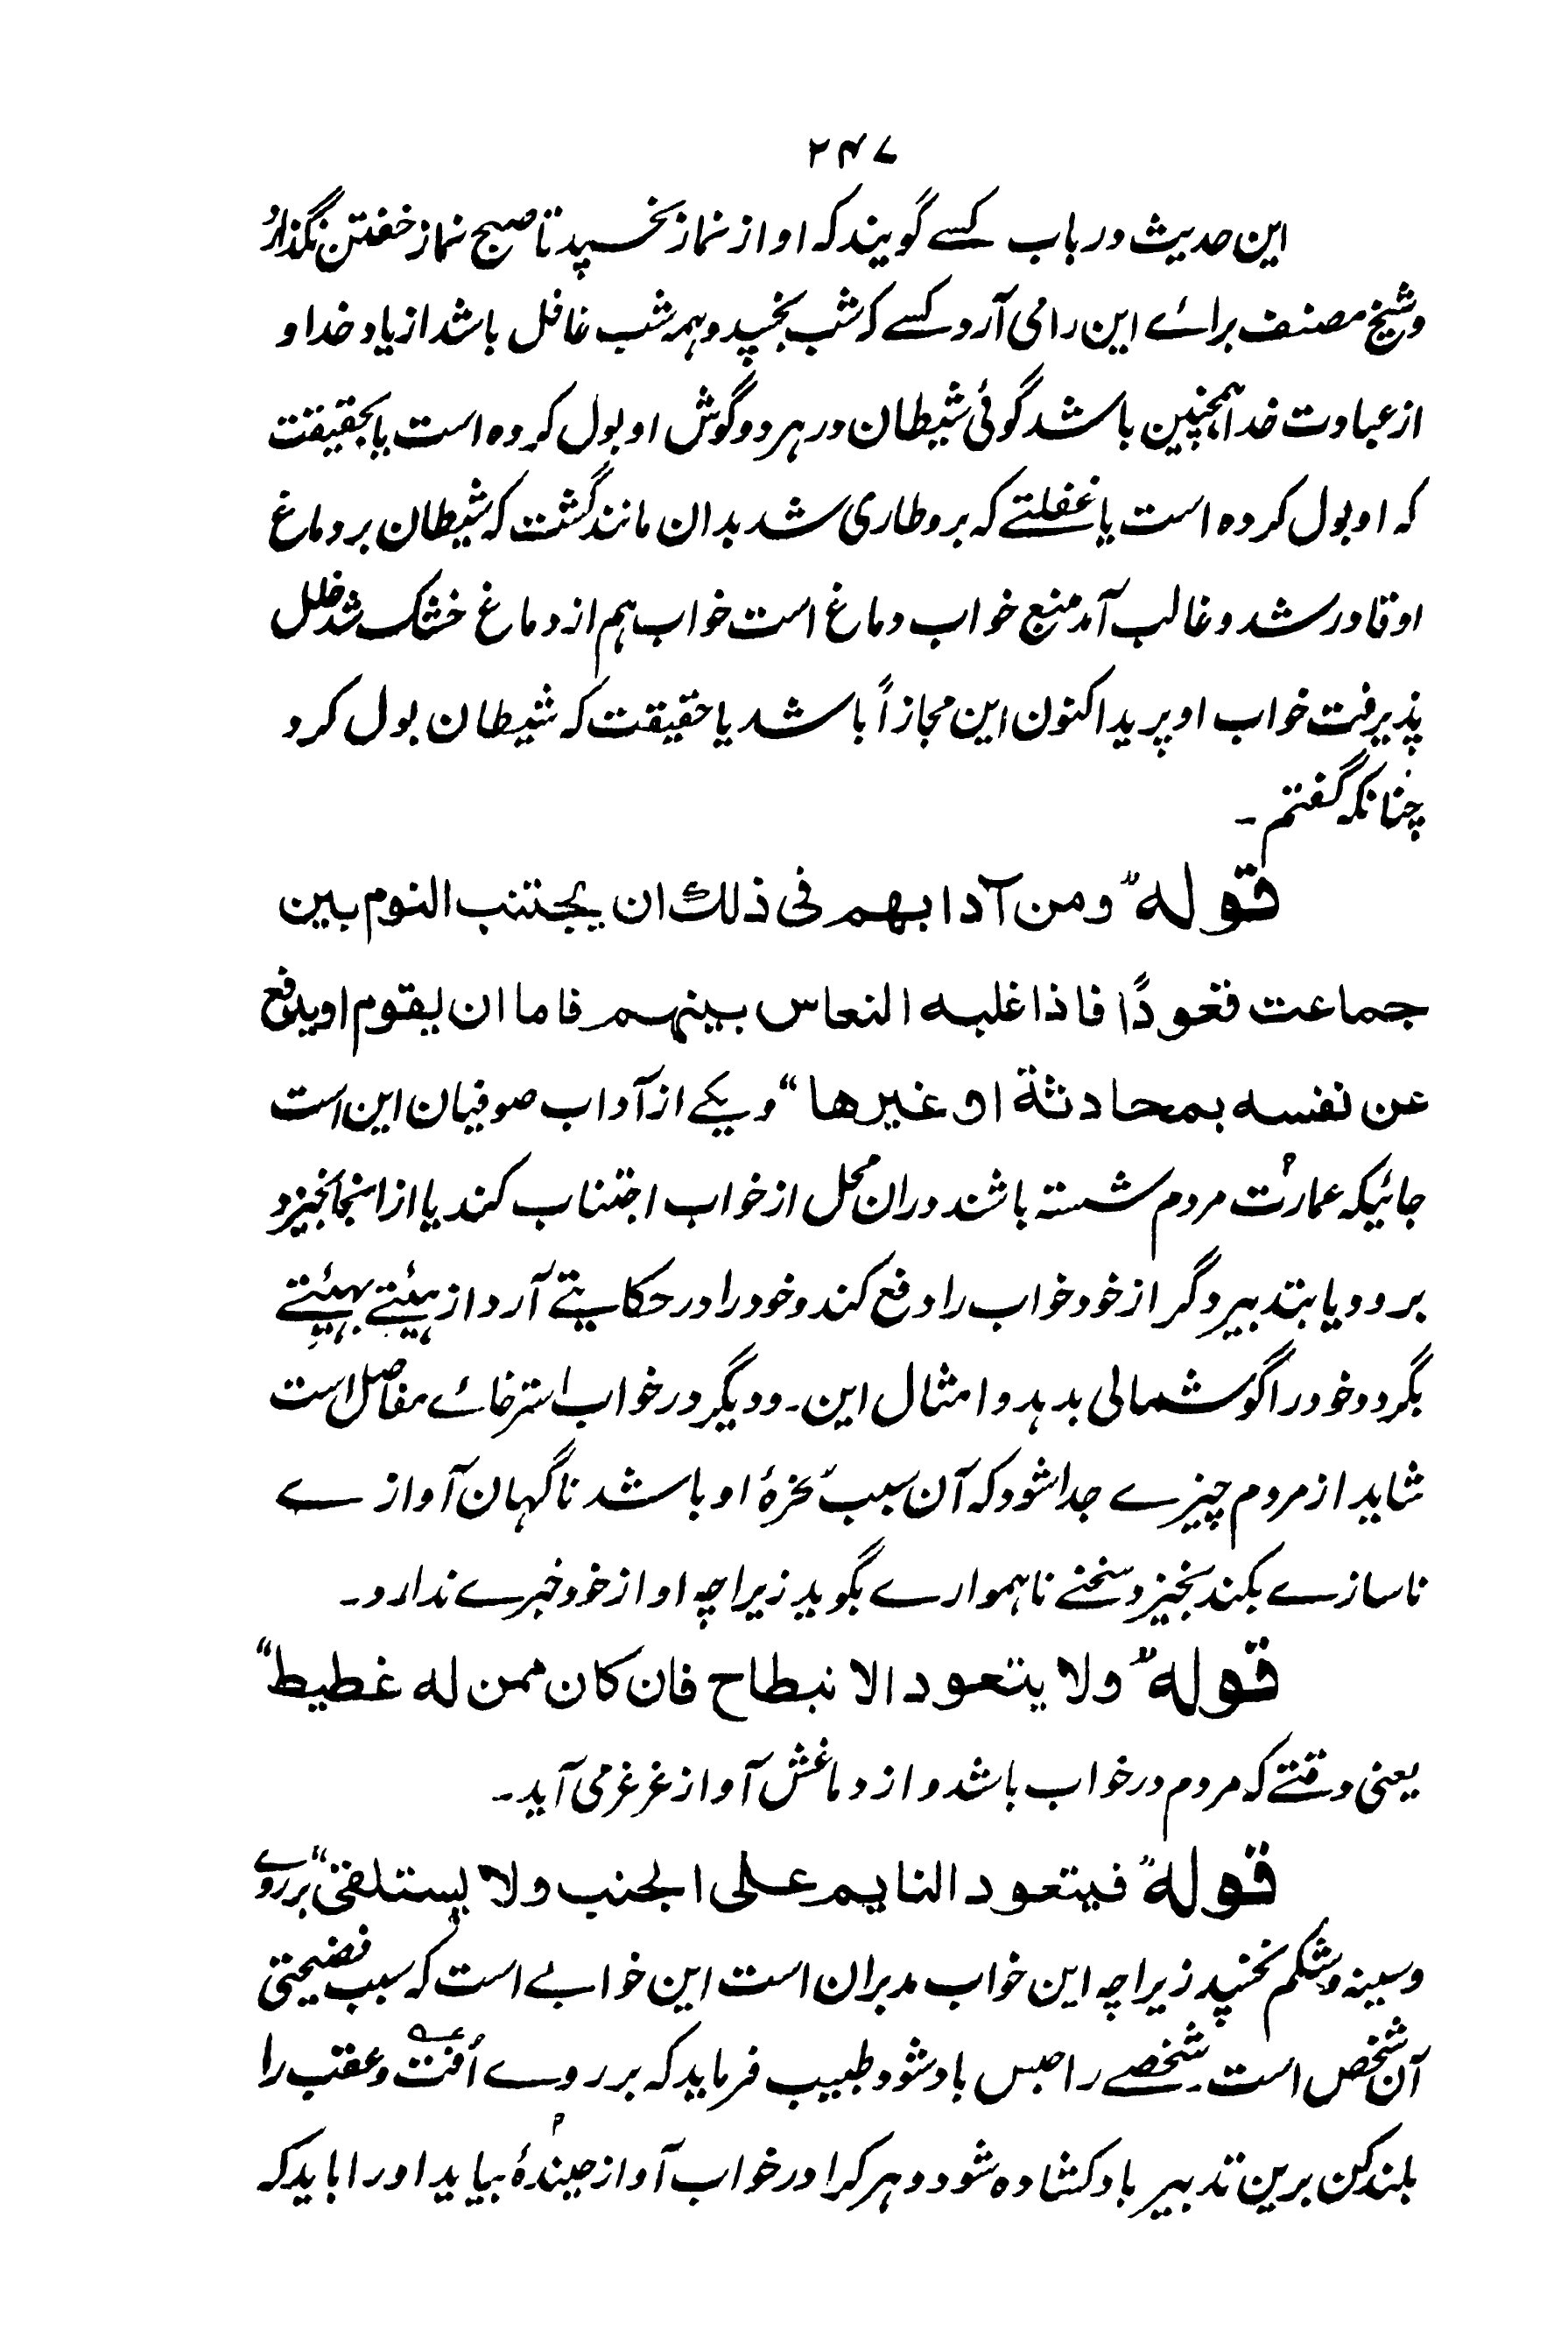 ۲۴۷
این حدیث در باب کسے گویند که او از نماز نخسپد تا صبح نماز خفتن نگذارد
و شیخ مصنف برائے این را می آرد کسے که شب بخسپد و ہمہ شب غافل باشد از یاد خدا و
از عبادت خدا ہمچنین باشد گوئی شیطان در ہر دو گوش او بول کرده است یا بحقیقت
که او بول کرده است یا غفلتے که برو طاری شد بدان مانند گشت که شیطان بر دماغ
او قادر شد و غالب آمد منبع خواب دماغ است خواب ہم از دماغ خشک شد خلل
پذیرفت خواب او پرید اکنون این مجازاً باشد یا حقیقت که شیطان بول کرد
چنانکہ گفتم۔
قوله "ومن آدابهم فی ذلك ان يجتنب النوم بين
جماعت قعودًا فاذا غلبه النعاس بينهم فاما ان يقوم او يدفع
عن نفسه بمحادثة او غيرها" و یکے از آداب صوفیان این است
جائیکہ عمارت مردم شستہ باشند دران محل از خواب اجتناب کند یا از انجا بخیزد
برود یا بتدبیر دگر از خود خواب را دفع کند و خود را در حکایتے آرد از ہیئتے بہیئتے
بگردد و خود را گوشمالی بدہد و امثال این۔ و دیگر در خواب استرخائے مفاصل است
شاید از مردم چیزے جدا شود که آن سبب سخرۂ او باشد ناگہان آوازے
ناسازے بکند بخیزد سخنے ناہموارے بگوید زیراچہ او از خود خبرے ندارد۔
قوله "ولا يتعود الانبطاح فان كان ممن له غطيط"
یعنی وقتے که مردم در خواب باشد و از دماغش آواز غرغر می آید۔
قوله "فيتعود النايم على الجنب ولا يستلقی" بر روے
و سینہ و شکم نخسپد زیراچہ این خواب مدبران است این خوابے است که سبب فضیحتی
آن شخص است۔ شخصے را حبس باد شود طبیب فرماید که بر روے اُفت و عقب را
بلند کن برین تدبیر باد کشاده شود و ہر کرا در خواب آواز بیاید اورا باید که